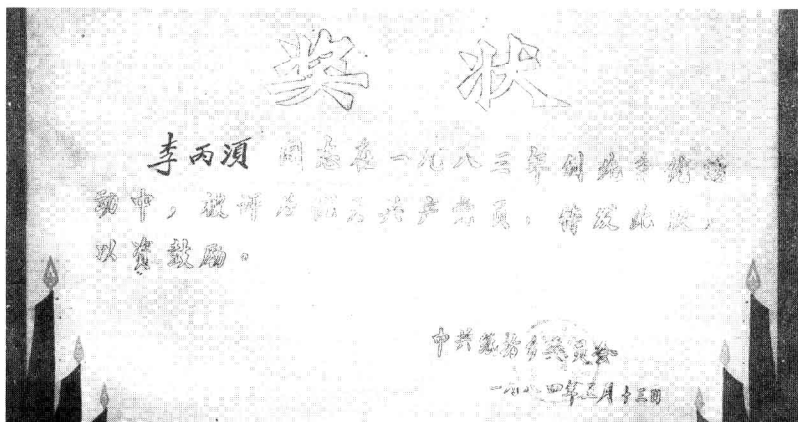 奖 状
李丙须 同志在一九八三年创先争优活
动中，被评为优秀共产党员，特发此状，
以资鼓励。
中共 乡委员会
一九八四年三月十三日